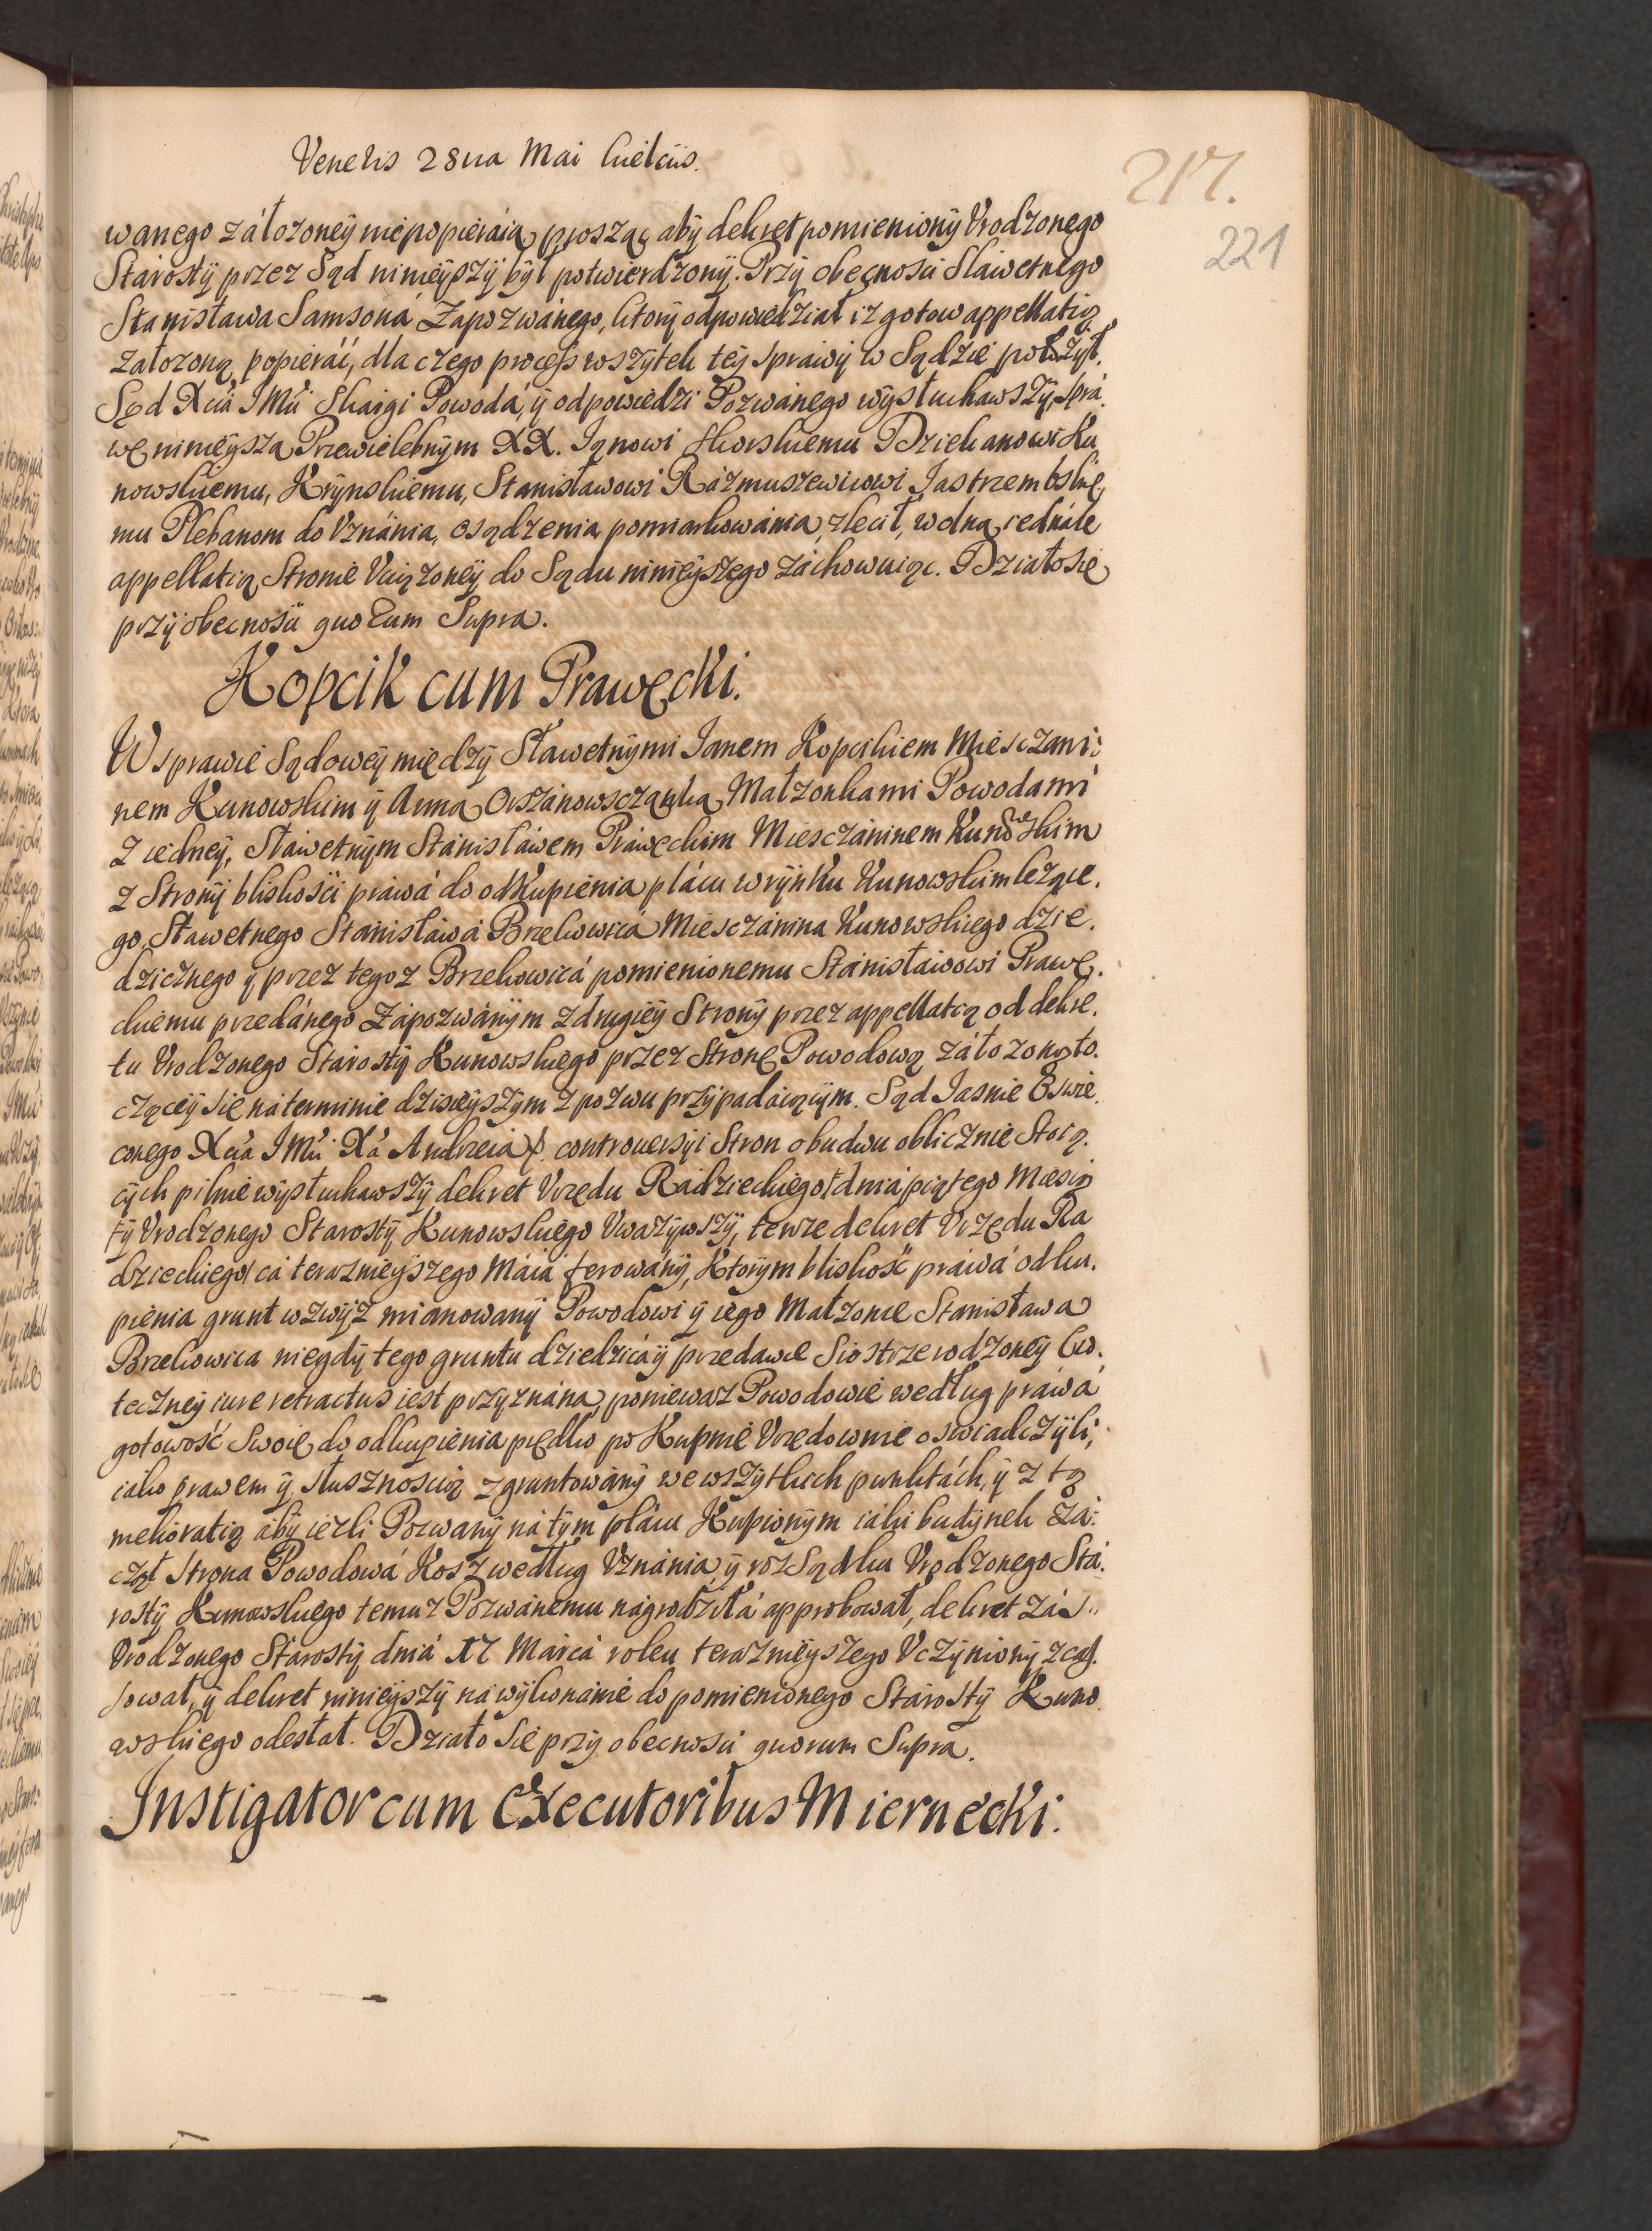 Veneris 28va Mai Kielciis.
217.
221
wanego záłozoneÿ niepopieráią prosząc abÿ dekret pomienionÿ Vrodzonego
Starostÿ przez Sąd ninieÿszÿ bÿł potwierdzonÿ. Przÿ obecnosci Sławetnego
Stanisława Samsoná Zapozwánego, ktorÿ odpowiedział iz gotow appellatią
załozoną popieráć, dla czego process wszÿtek teÿ sprawÿ w Sądzie położÿł.
Sąd Xcia JMci Skargi Powodá, ÿ odpowiedzi Pozwánego wÿsłuchawszÿ, sprá
wę ninieÿszą Przewielebnÿm XX. Janowi Skorskiemu Dziekanowi Ku
nowskiemu, Krÿnskiemu, Stanisławowi Rázmuszewicowi Jastrzembskie
mu Plebanom do Vznánia, osądzenia, pomiarkowánia, zlecił, wolną iednák
appellatią Stronie Vciązoneÿ do Sądu ninieÿszego záchowuiąc. Działo się
przÿ obecnosci quorum Supra.
Kopcik cum Prawęcki.
W sprawie Sądoweÿ międzÿ Sławetnÿmi Janem Kopcikiem Miesczani:
nem Kunowskim ÿ Anną Orszánowscząnką Małzonkami Powodami
z iedneÿ, Sławetnÿm Stánisławem Práwęckim Miesczáninem Kunowskim
z Stronÿ bliskości práwá do odkupienia plácu w rÿnku Kunowskim leżące.
go, Sławetnego Stánisława Brzekowicá Miesczánina Kunowskiego dzie.
dzicznego ÿ przez tegoz Brzekowicá pomienionemu Stánisłáwowi Prawę.
ckiemu przedánego Zápozwánÿm z drugieÿ Stronÿ przez appellatią od dekre.
tu Vrodzonego Stárostÿ Kunowskiego przez Stronę Powodową záłozoną to.
cząceÿ się ná terminie dzisieÿszÿm z pozwu przÿpadáiącÿm. Sąd Jasnie Oswie.
conego Xcia JMci Xa Andrzeia &. controuersÿi Stron obudwu oblicznie Stoią.
cÿch pilnie wÿsłuchawszÿ dekret Vrzędu Rádzieckiego dniá piątego Miesią
tÿ Vrodzonego Starostÿ Kunowskiego Vwazÿwszÿ, tenze dekret Vrzędu Ra
dzieckiego ca terazneÿszego Máia ferowánÿ, ktorÿm bliskość práwá odku.
pienia grunt wzwÿż mianowanÿ Powodowi ÿ iego Małzonce Stanisława
Brzekowica niegdÿ tego gruntu dziedzicá ÿ przedawce Siostrze rodzoneÿ Cio.
teczneÿ iure retractus iest przÿznána, poniewaz Powodowie według práwá
gotowość Swoię do odkupienia prędko po Kupnie Vrzędownie oswiadczÿli,
iako prawem ÿ słusznoscią zgruntowánÿ we wszÿtkich punktách, ÿ z tą
melioratią abÿ iezli Pozwanÿ ná tÿm plácu Kupionÿm iáki budÿnek zá:
czął Strona Powodowá Koszt według Vznánia ÿ rozsądku Vrodzonego Stá.
rostÿ Kunowskiego temuz Pozwánemu nágrodziłá approbował, dekret záś
Vrodzonego Stárostÿ dniá 17 Márcá roku terazneÿszego Vczÿnionÿ zcas.
sował, ÿ dekret ninieÿszÿ ná wÿkonánie do pomienionego Stárostÿ Kuno
wskiego odesłał. Działo się przÿ obecnosci quorum Supra.
Instigator cum Executoribus Miernecki.